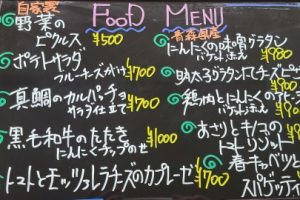 FOOD MENU
自家製
野菜の
ピクルス ¥500
ポテトサラダ
ブルーチーズがけ ¥700
真鯛のカルパッチョ
サラダ仕立て ¥700
黒毛和牛のたたき
にんにくチップのせ ¥1000
トマトとモッツァレラチーズのカプレーゼ ¥700
青森県産
にんにくの味噌グラタン
バケット添え ¥980
鶏
バケット添え
あさりとキノコの
トマトリゾット
春キャベツと
スパゲッティ